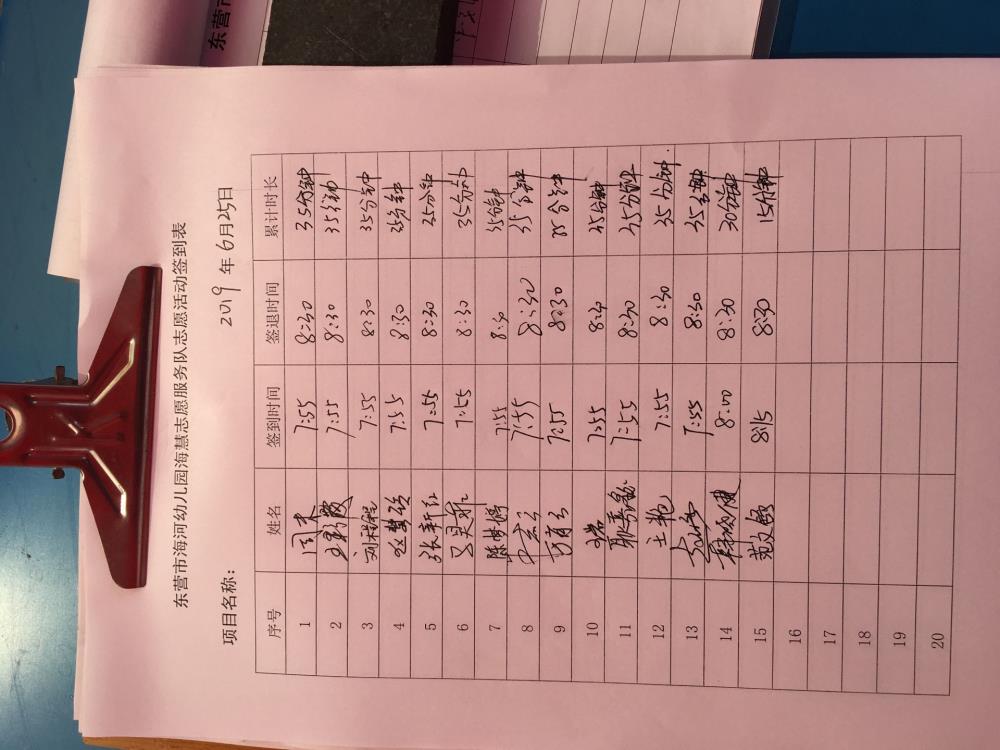 东营市
东营市海河幼儿园海慧志愿服务队志愿活动签到表
项目名称： 2019 年 6月25日
序号 姓名 签到时间 签退时间 累计时长
1 7:55 8:30 35分钟
2 7:55 8:30 35分钟
3 7:55 8:30 35分钟
4 7:55 8:30 35分钟
5 张新红 7:55 8:30 35分钟
6 7:55 8:30 35分钟
7 7:55 8:30 35分钟
8 7:55 8:30 35分钟
9 7:55 8:30 35分钟
10 7:55 8:30 35分钟
11 7:55 8:30 35分钟
12 王艳 7:55 8:30 35分钟
13 7:55 8:30 35分钟
14 8:00 8:30 30分钟
15 8:15 8:30 15分钟
16
17
18
19
20